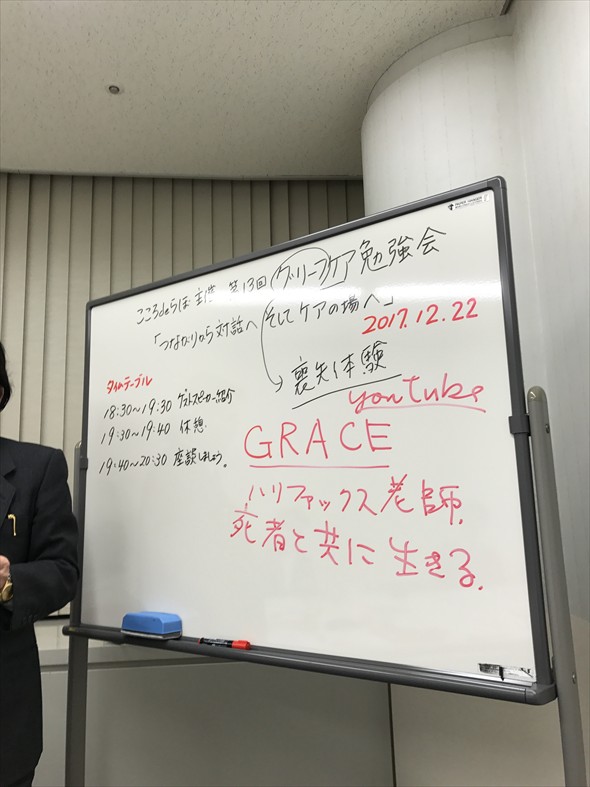 こころdeらぼ 主催 第13回 グリーフケア勉強会
「つながりから対話へ そしてケアの場へ」
2017.12.22
→喪失体験
タイムテーブル
18:30～19:30 ゲストスピーカー紹介
19:30～19:40 休憩
19:40～20:30 座談しましょう。
youtube
GRACE
ハリファックス老師.
死者と共に生きる.